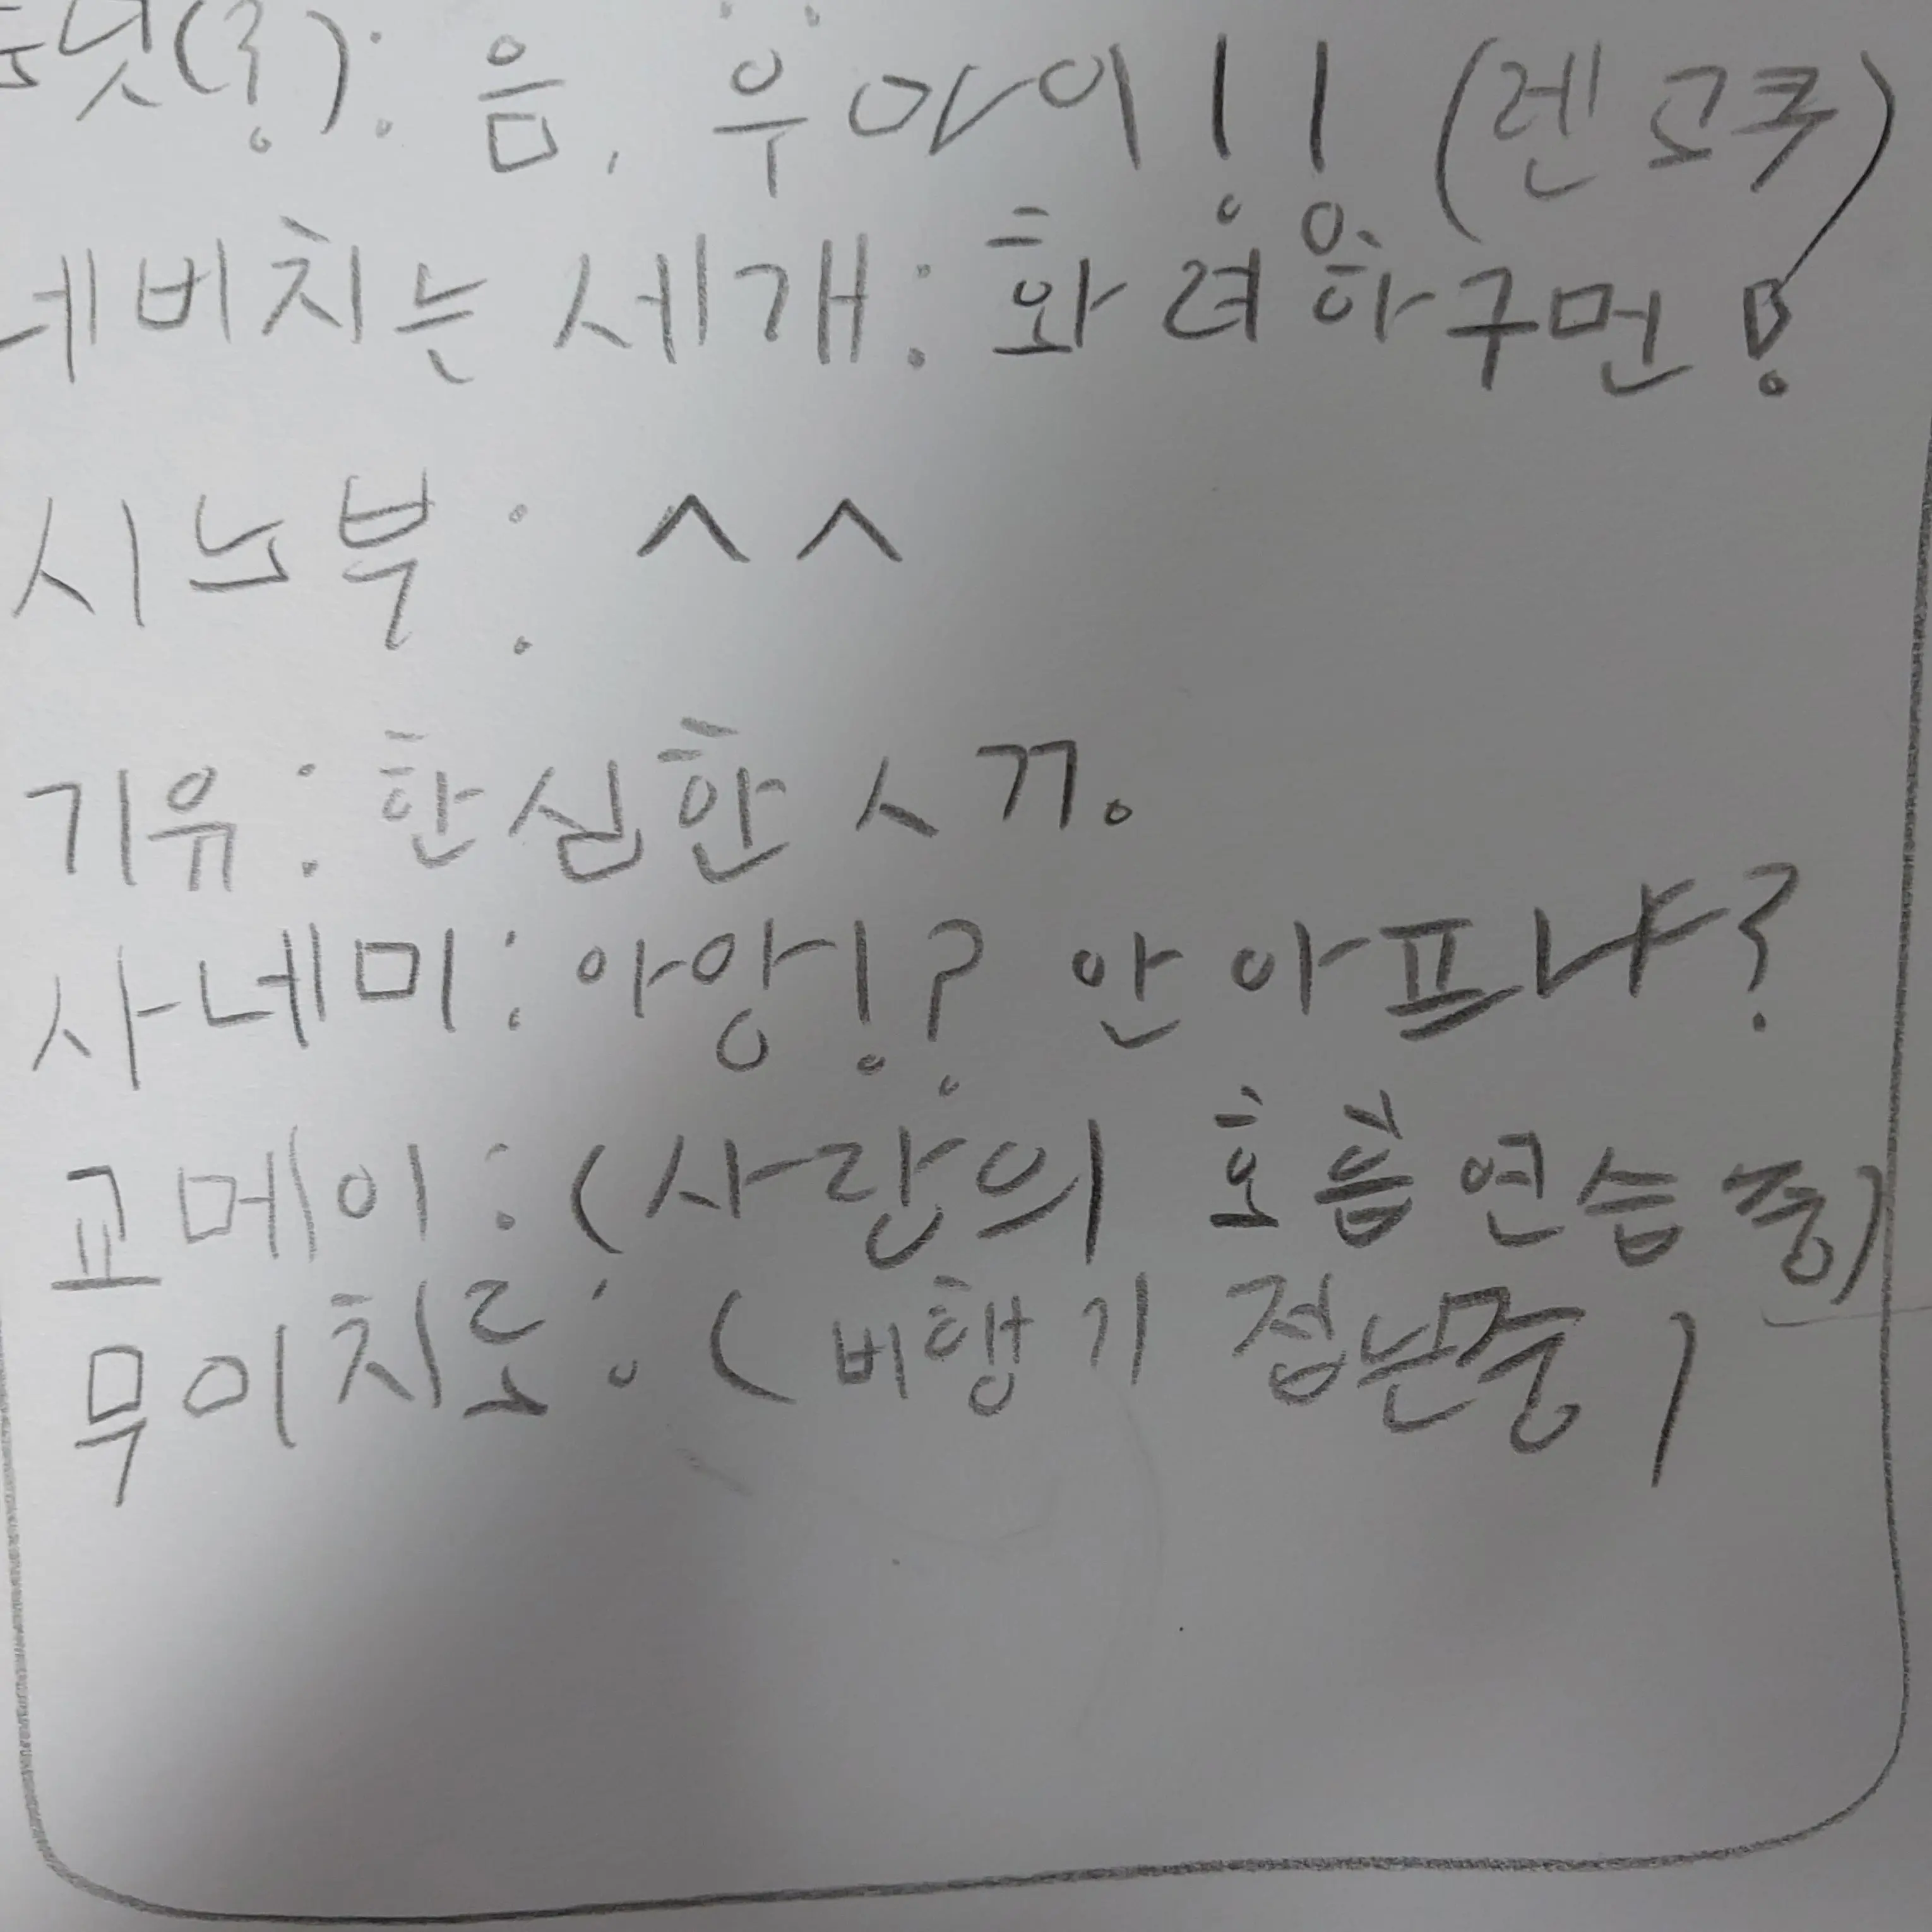 넷(?): 음, 우아이!! (렌고쿠)
네버치는 세개: 화려하구먼!
시노부: ^^
기유: 한심한 ㅅㄲ.
사네미: 아앙!? 안 아프냐?
교메이: (사랑의 호흡 연습 중)
무이치로: (비행기 접는중)